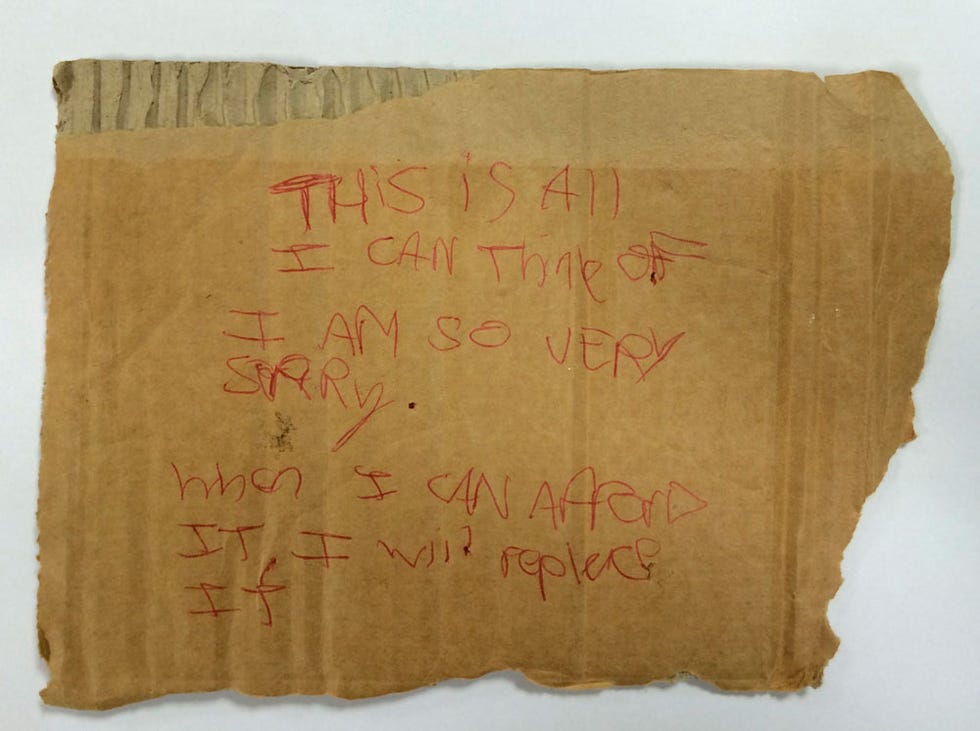 THiS iS All
I CAN Think OF
I AM SO VERY
SORRY.
When I CAN AffORD
IT, I will replace
It